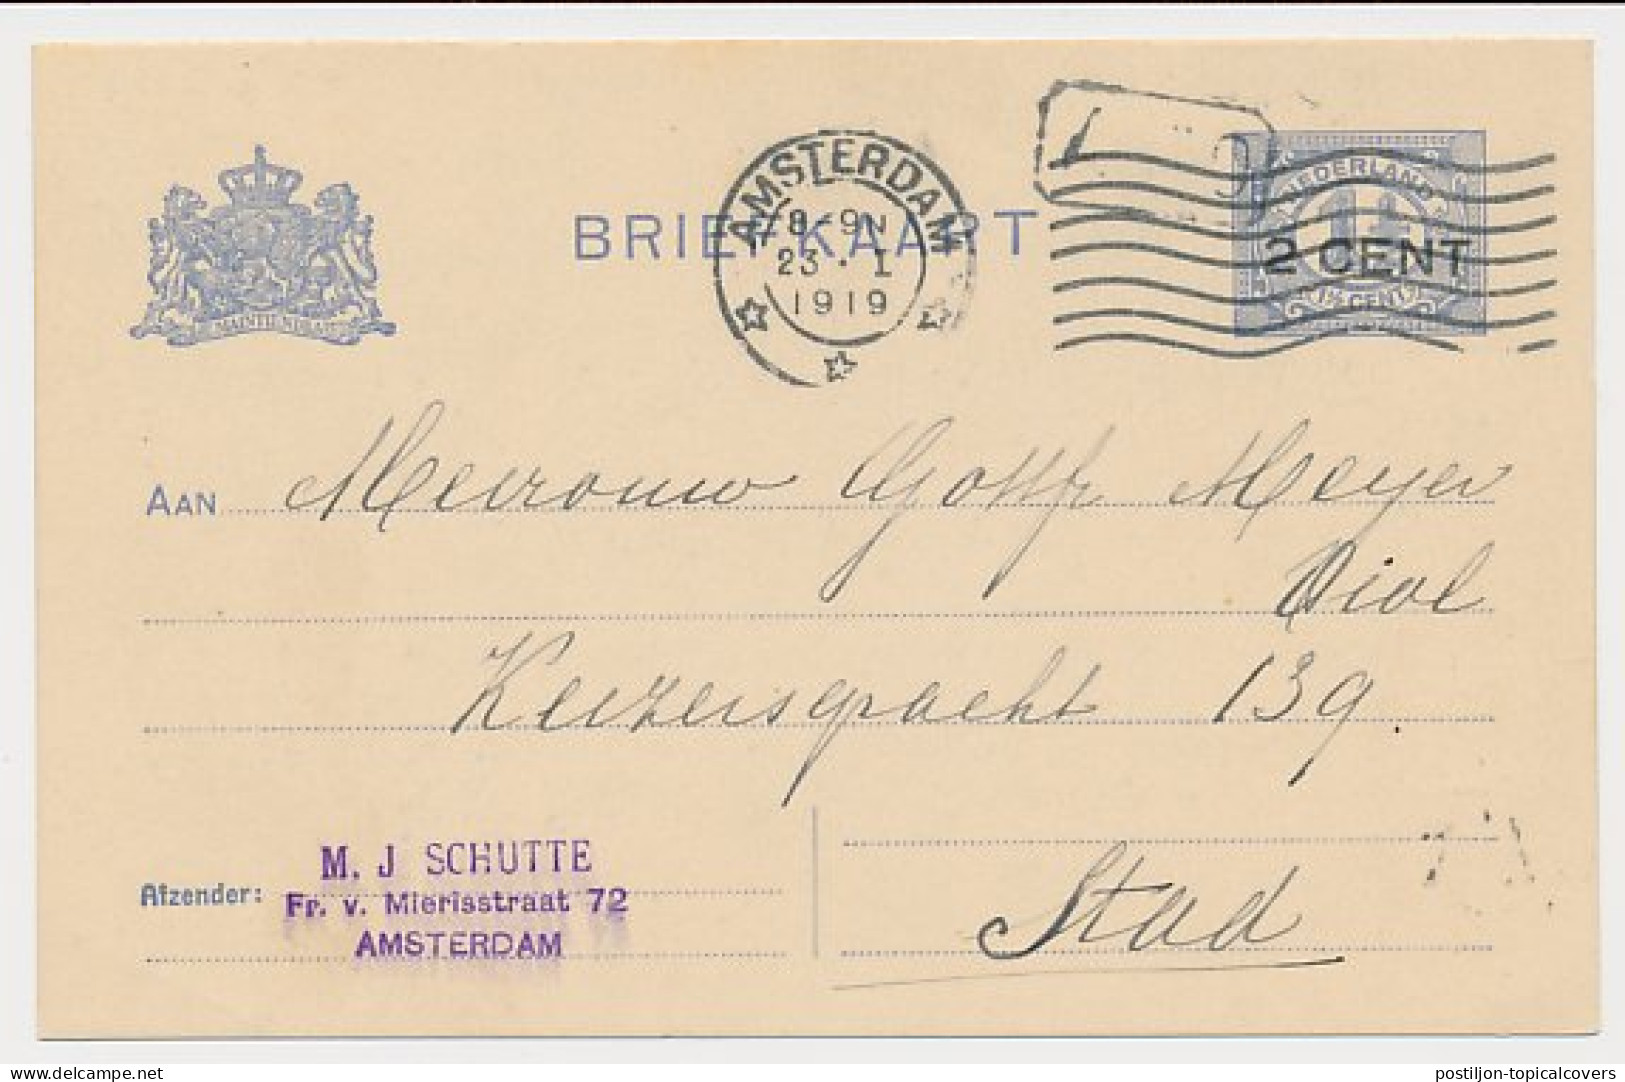 AMSTERDAM
8-9N
23 . I
1919
BRIEFKAART
NEDERLAND
1½
2 CENT
1½ CENT
AAN Mevrouw Gottfr Meyer
Keizersgracht 139.
Stad
M. J SCHUTTE
Afzender: Fr. v. Mierisstraat 72
AMSTERDAM
www.delcampe.net
postiljon-topicalcovers